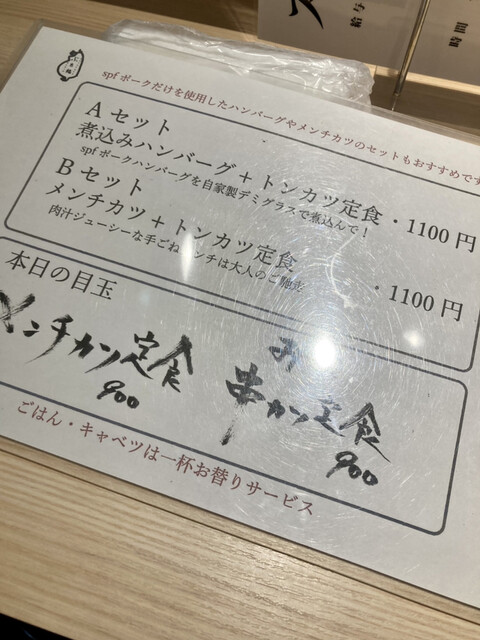 spfポークだけを使用したハンバーグやメンチカツのセットもおすすめです
Aセット
煮込みハンバーグ+トンカツ定食・1100円
spfポークハンバーグを自家製デミグラスで煮込んで!
Bセット
メンチカツ+トンカツ定食・1100円
肉汁ジューシーな手ごねメンチは大人のご馳走
本日の目玉
メンチカツ定食
900
串カツ定食
900
ごはん・キャベツは一杯お替りサービス
給与
時間